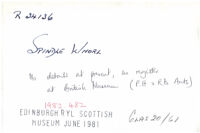 R 24136
SPINDLE WHORL
No details at present, in register
at British Museum (P.B + R.B. Ants)
1982 482
EDINBURGH RYL SCOTTISH
MUSEUM JUNE 1981
Glas 20/61